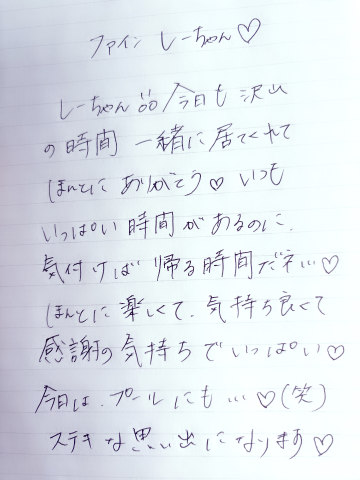 ファイン しーちゃん♡
しーちゃん 今日も 沢山
の時間 一緒に居てくれて
ほんとに ありがとう♡ いつも
いっぱい時間があるのに、
気付けば 帰る時間だネ…♡
ほんとに楽しくて、気持ち良くて
感謝の気持ちでいっぱい♡
今日は、プールにも…♡(笑)
ステキな思い出になります♡